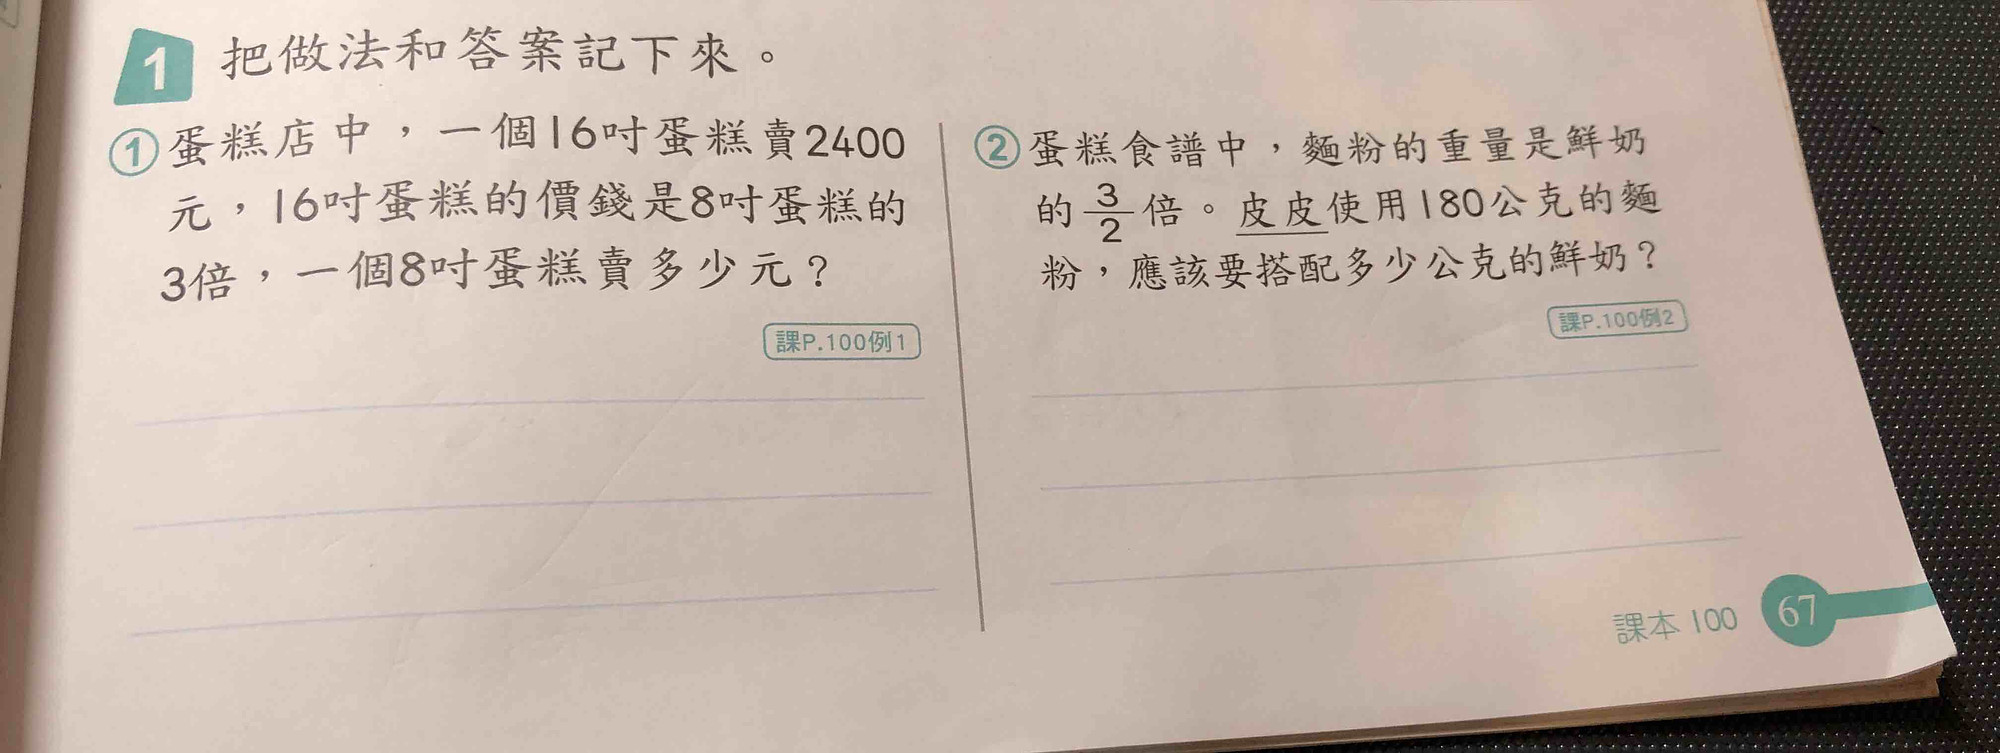 1 把做法和答案記下來。
①蛋糕店中，一個16吋蛋糕賣2400
元，16吋蛋糕的價錢是8吋蛋糕的
3倍，一個8吋蛋糕賣多少元？
課P.100例1
②蛋糕食譜中，麵粉的重量是鮮奶
的3/2倍。皮皮使用180公克的麵
粉，應該要搭配多少公克的鮮奶？
課P.100例2
課本100 67